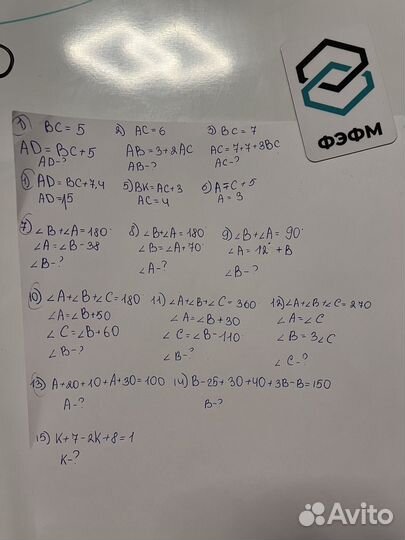 ФЭФМ
1) BC = 5 2) AC = 6 3) BC = 7
AD = BC + 5 AB = 3 + 2AC AC = 7 + 7 + 3BC
AD - ? AB - ? AC - ?
4) AD = BC + 7,4 5) BK = AC + 3 6) A = C + 5
AD = 15 AC = 4 A = 3
7) ∠B + ∠A = 180° 8) ∠B + ∠A = 180 9) ∠B + ∠A = 90°
∠A = ∠B - 38 ∠B = ∠A + 70° ∠A = 12° + B
∠B - ? ∠A - ? ∠B - ?
10) ∠A + ∠B + ∠C = 180 11) ∠A + ∠B + ∠C = 360 12) ∠A + ∠B + ∠C = 270
∠A = ∠B + 50 ∠A = ∠B + 30 ∠A = ∠C
∠C = ∠B + 60 ∠C = ∠B - 110 ∠B = 3∠C
∠B - ? ∠B - ? ∠C - ?
13) A + 20 + 10 + A + 30 = 100 14) B - 25 + 30 + 40 + 3B - B = 150
A - ? B - ?
15) K + 7 - 2K + 8 = 1
K - ?
Avito